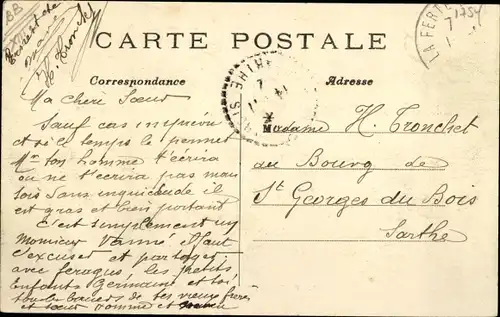 BB
H. Tronchet
1754
LA FERTE
CARTE POSTALE
Correspondance
Adresse
SARTHE
Ma chère Sœur
Sauf cas imprévu
et si ce temps le permet
Mr ton homme t'écrira
ou ne t'écrira pas mais
sois sans inquiétude il
est gras et bien portant
C'est simplement un
Monsieur
s'excuser et partager
avec les petits
enfants Germaine et toi
tous les baisers de tes vieux frères
et sœur
Madame H. Tronchet
au Bourg de
St Georges du Bois
Sarthe